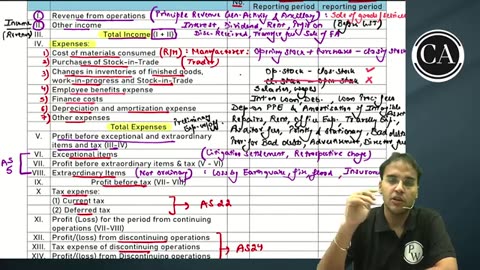 No. reporting period reporting period
I. Revenue from operations (Principle Revenue Gen. Activity & Ancillary) : Sale of Goods / Services
II. Other income Interest, Dividend, Rent, Profit on
III. Total Income (I + II) Disc. Received, Transfer fees, Sale of FA
IV. Expenses:
1) Cost of materials consumed (R/M) : Manufacturer : Opening Stock + Purchase - closing Stock
2) Purchases of Stock-in-Trade (Trader)
3) Changes in inventories of finished goods, Op. Stock - Clos. Stock
work-in-progress and Stock-in-Trade X
4) Employee benefits expense Salaries, wages
5) Finance costs Int on Loan, Deb.
6) Depreciation and amortization expense Dep on PPE & Amortization of Intangible
7) Other expenses Repairs, Rent, Office Exp. Travelling Exp.,
Total Expenses Auditor fees, Printing & Stationary, Bad debts
V. Profit before exceptional and extraordinary items and tax (III-IV) Prov for Bad debts, Advertisement, Director fees
VI. Exceptional items (Litigation Settlement, Retrospective change)
AS 5
VII. Profit before extraordinary items & tax (V - VI)
VIII. Extraordinary Items (Not ordinary) : Loss by Earthquake, fire, flood, Insurance
Profit before tax (VII- VIII)
X Tax expense:
(1) Current tax
(2) Deferred tax AS 22
XI. Profit (Loss) for the period from continuing operations (VII-VIII)
XII. Profit/(loss) from discontinuing operations
XIII. Tax expense of discontinuing operations AS 24
XIV. Profit/(loss) from Discontinuing operations
CA
PW